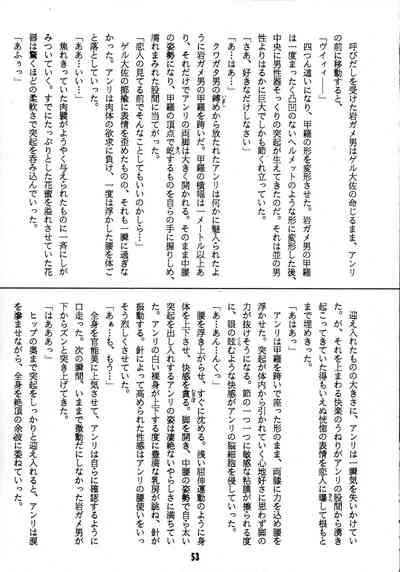 呼びだしを受けた岩ガメ男はゲル大佐の命じるまま、アンリ
の前に移動すると、
「ヴィィィ━━」
　四つん這いになり、甲羅の形を変形させた。岩ガメ男の甲羅
は一度まったく凸凹のないヘルメットのような形に変形した後、
中央に男性器そっくりの突起が生えてきたのだ。それは並の男
性よりはるかに巨大でしかも節くれ立っていた。
「さあ、好きなだけしなさい」
「あ…はぁ…」
　クワガタ男の縛めから放たれたアンリは何かに魅入られたよ
うに岩ガメ男の甲羅を跨いだ。甲羅の横幅は一メートル以上あ
り、それだけでアンリの両脚は大きく開かれる。そのまま中腰
の姿勢になり、甲羅の頂点で屹立するものを自らの手に握りしめ、
濡れまみれた股間に当てがった。
「恋人の見てる前でそんなことしてもいいのかしら…」
　ゲル大佐の揶揄に表情を歪めたものの、それも一瞬に過ぎな
かった。アンリは肉体の欲求に負け、一度は浮かした腰を体ご
と落としていった。
「ああ…いい…」
　焦れきっていた肉襞がようやく与えられたものに一斉にしが
みついていく。すでにたっぷりとした花蜜を溢れさせていた花
唇は驚くほどの柔軟さで突起を呑み込んでいった。
「あふぅっ」
　迎え入れたものの大きさに、アンリは一瞬気を失いかけてい
た。が、それを上まわる快楽のうねりがアンリの股間から湧き
起こってきていた得もいえぬ恍惚の表情を恋人に曝して根もと
まで埋めきった。
「あはあっ」
　アンリは甲羅を跨いで座った形のまま、両膝に力を込め腰を
浮かせた。突起が体内から引かれていく心地好さに思わず脚の
力が抜けそうになる。節の一つ一つに敏感な粘膜が擦られる度
に、眼の眩むような快感がアンリの脳細胞を侵していった。
「あ…あん…んくっ」
　腰を浮き上がらせ、すぐに沈める。浅い屈伸運動のように身
体を上下させ、快感を貪る。脚を開き、中腰の姿勢で自ら太い
突起を出し入れするアンリの姿は凄絶ないやらしさに満ちてい
た。アンリの白い裸身が上下する度に豊満な乳房が跳ね、針が
振動する。針によって高められた性感はアンリの腰使いをいっ
そう烈しくさせていた。
「あぁ…も、もう…」
　全身を官能美に上気させて、アンリは自らに確認するように
口走った。次の瞬間、いままで微動だにしなかった岩ガメ男が
下からズンと突き上げてきた。
「はあああっ」
　ヒップの奥まで突起をしっかりと迎え入れると、アンリは涙
を滲ませながら、全身を絶頂の余波に委ねていった。
53